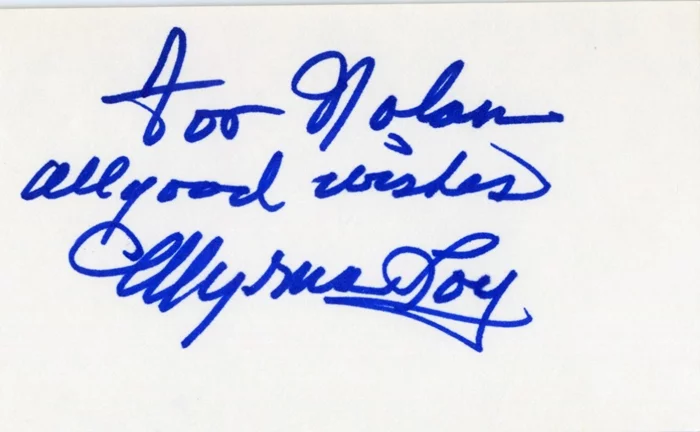 For Nolan
all good wishes
Myrna Loy